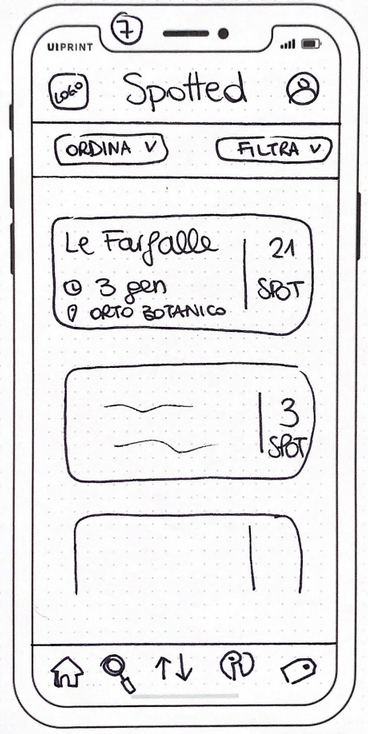 7
UIPRINT
LOGO
Spotted
ORDINA
FILTRA
Le Farfalle
21
SPOT
3 gen
ORTO BOTANICO
3
SPOT